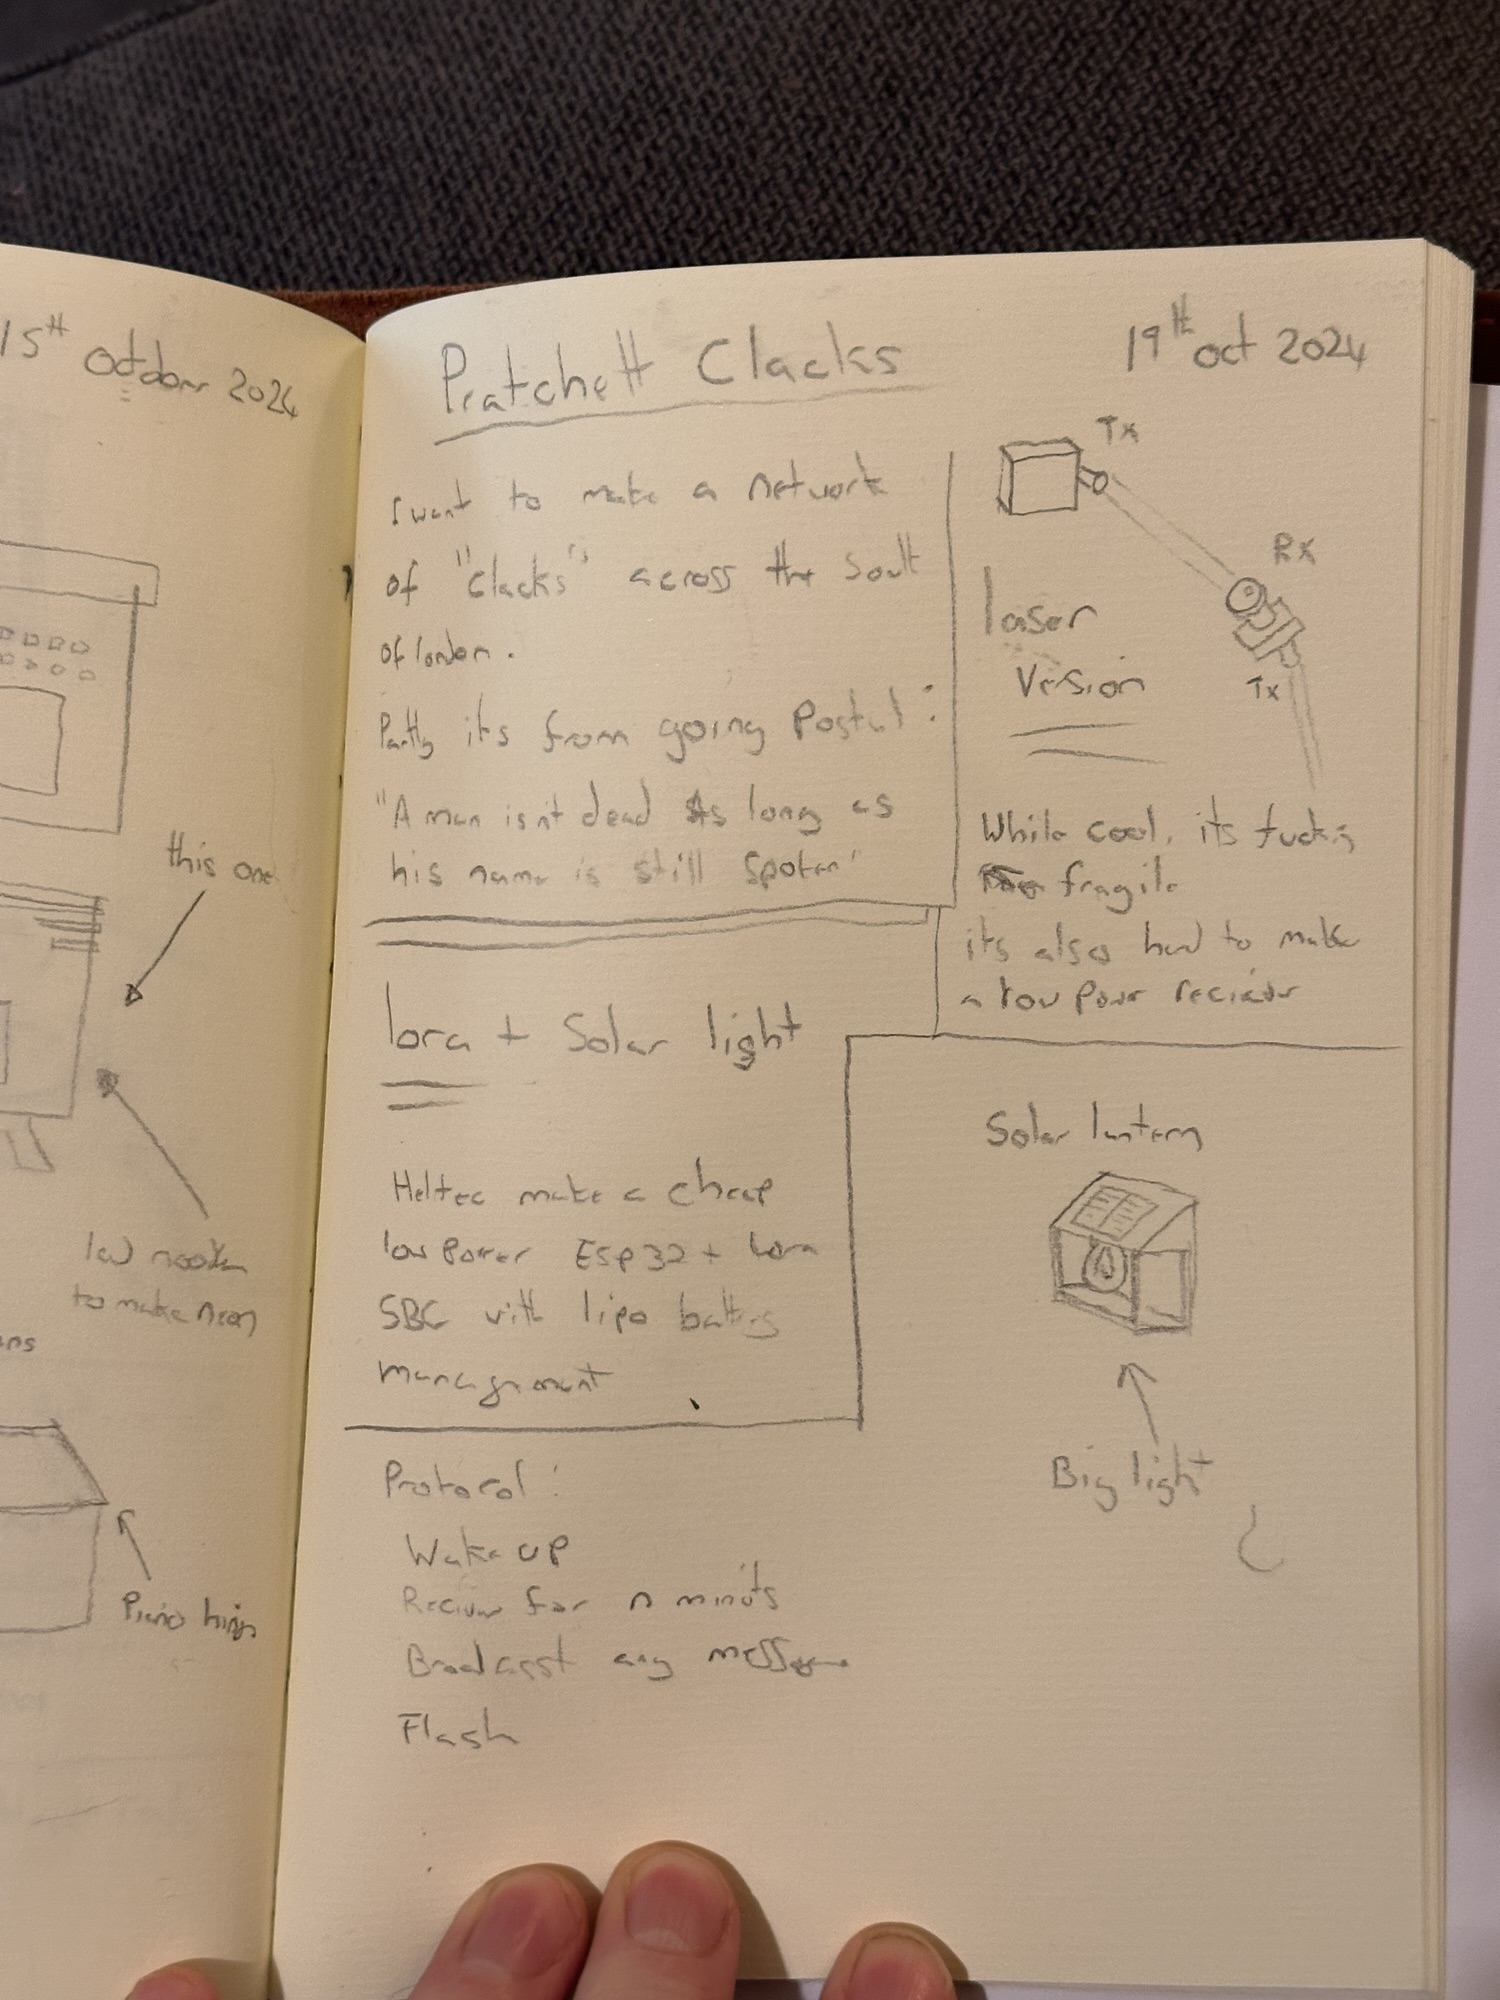 15th October 2024
this one
to make neon
ons
Piano hinge
Pratchett Clacks
19th oct 2024
I want to make a network
of "Clacks" across the South
of london.
Partly its from going Postal:
"A man isnt dead As long as
his name is still spoken"
Tx
RX
Tx
laser
Version
While cool, its fucking
fragile
its also hard to make
a low power reciever
lora + Solar light
Heltec make a cheap
low Power ESP32 + Lora
SBC with lipo battery
management
Solar lantern
Big light
Protocol:
Wake up
Reciever for n minuts
Broadcast any message
Flash